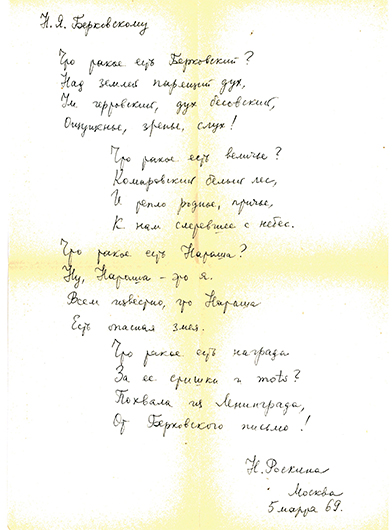 Н. Я. Берковскому
Что такое есть Берковский?
Над землей парящий дух,
Ум чертовский, дух бесовский,
Ощущенье, зренье, слух!
Что такое есть величье?
Комаровский белый лес,
И тепло родное, птичье,
К нам слетевшее с небес.
Что такое есть Наташа?
Ну, Наташа – это я.
Всем известно, что Наташа
Есть опасная змея.
Что такое есть награда
За ее стишки и mots?
Похвала из Ленинграда,
От Берковского письмо!
Н. Роскина
Москва
5 марта 69.